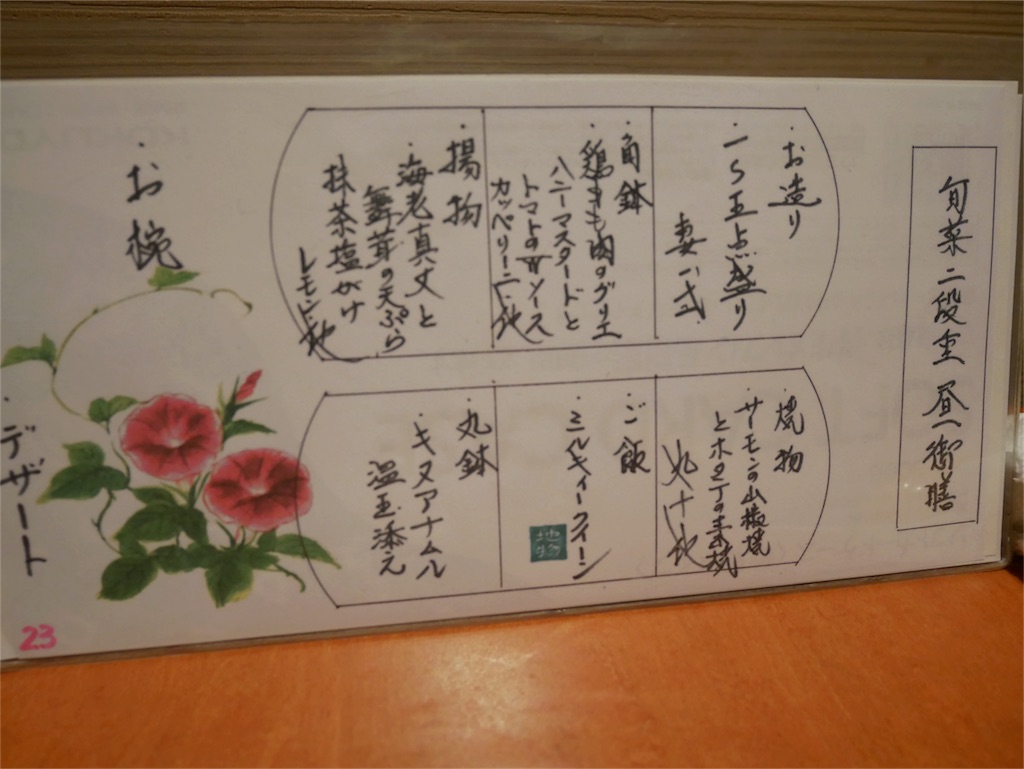 旬菜二段重 昼御膳
・お造り
・一〜五点盛り
妻一式
・角鉢
・鶏もも肉のグリエ
ハニーマスタードと
トマトのソース
カッペリーニ・他
・揚物
・海老真丈と
舞茸の天ぷら
抹茶塩がけ
レモン・他
・焼物
サーモンの山椒焼
とホタテの素焼
丸十・他
・ご飯
・ミルキィークイーン
地物
・丸鉢
・キヌアナムル
温玉添え
・お椀
・デザート
23